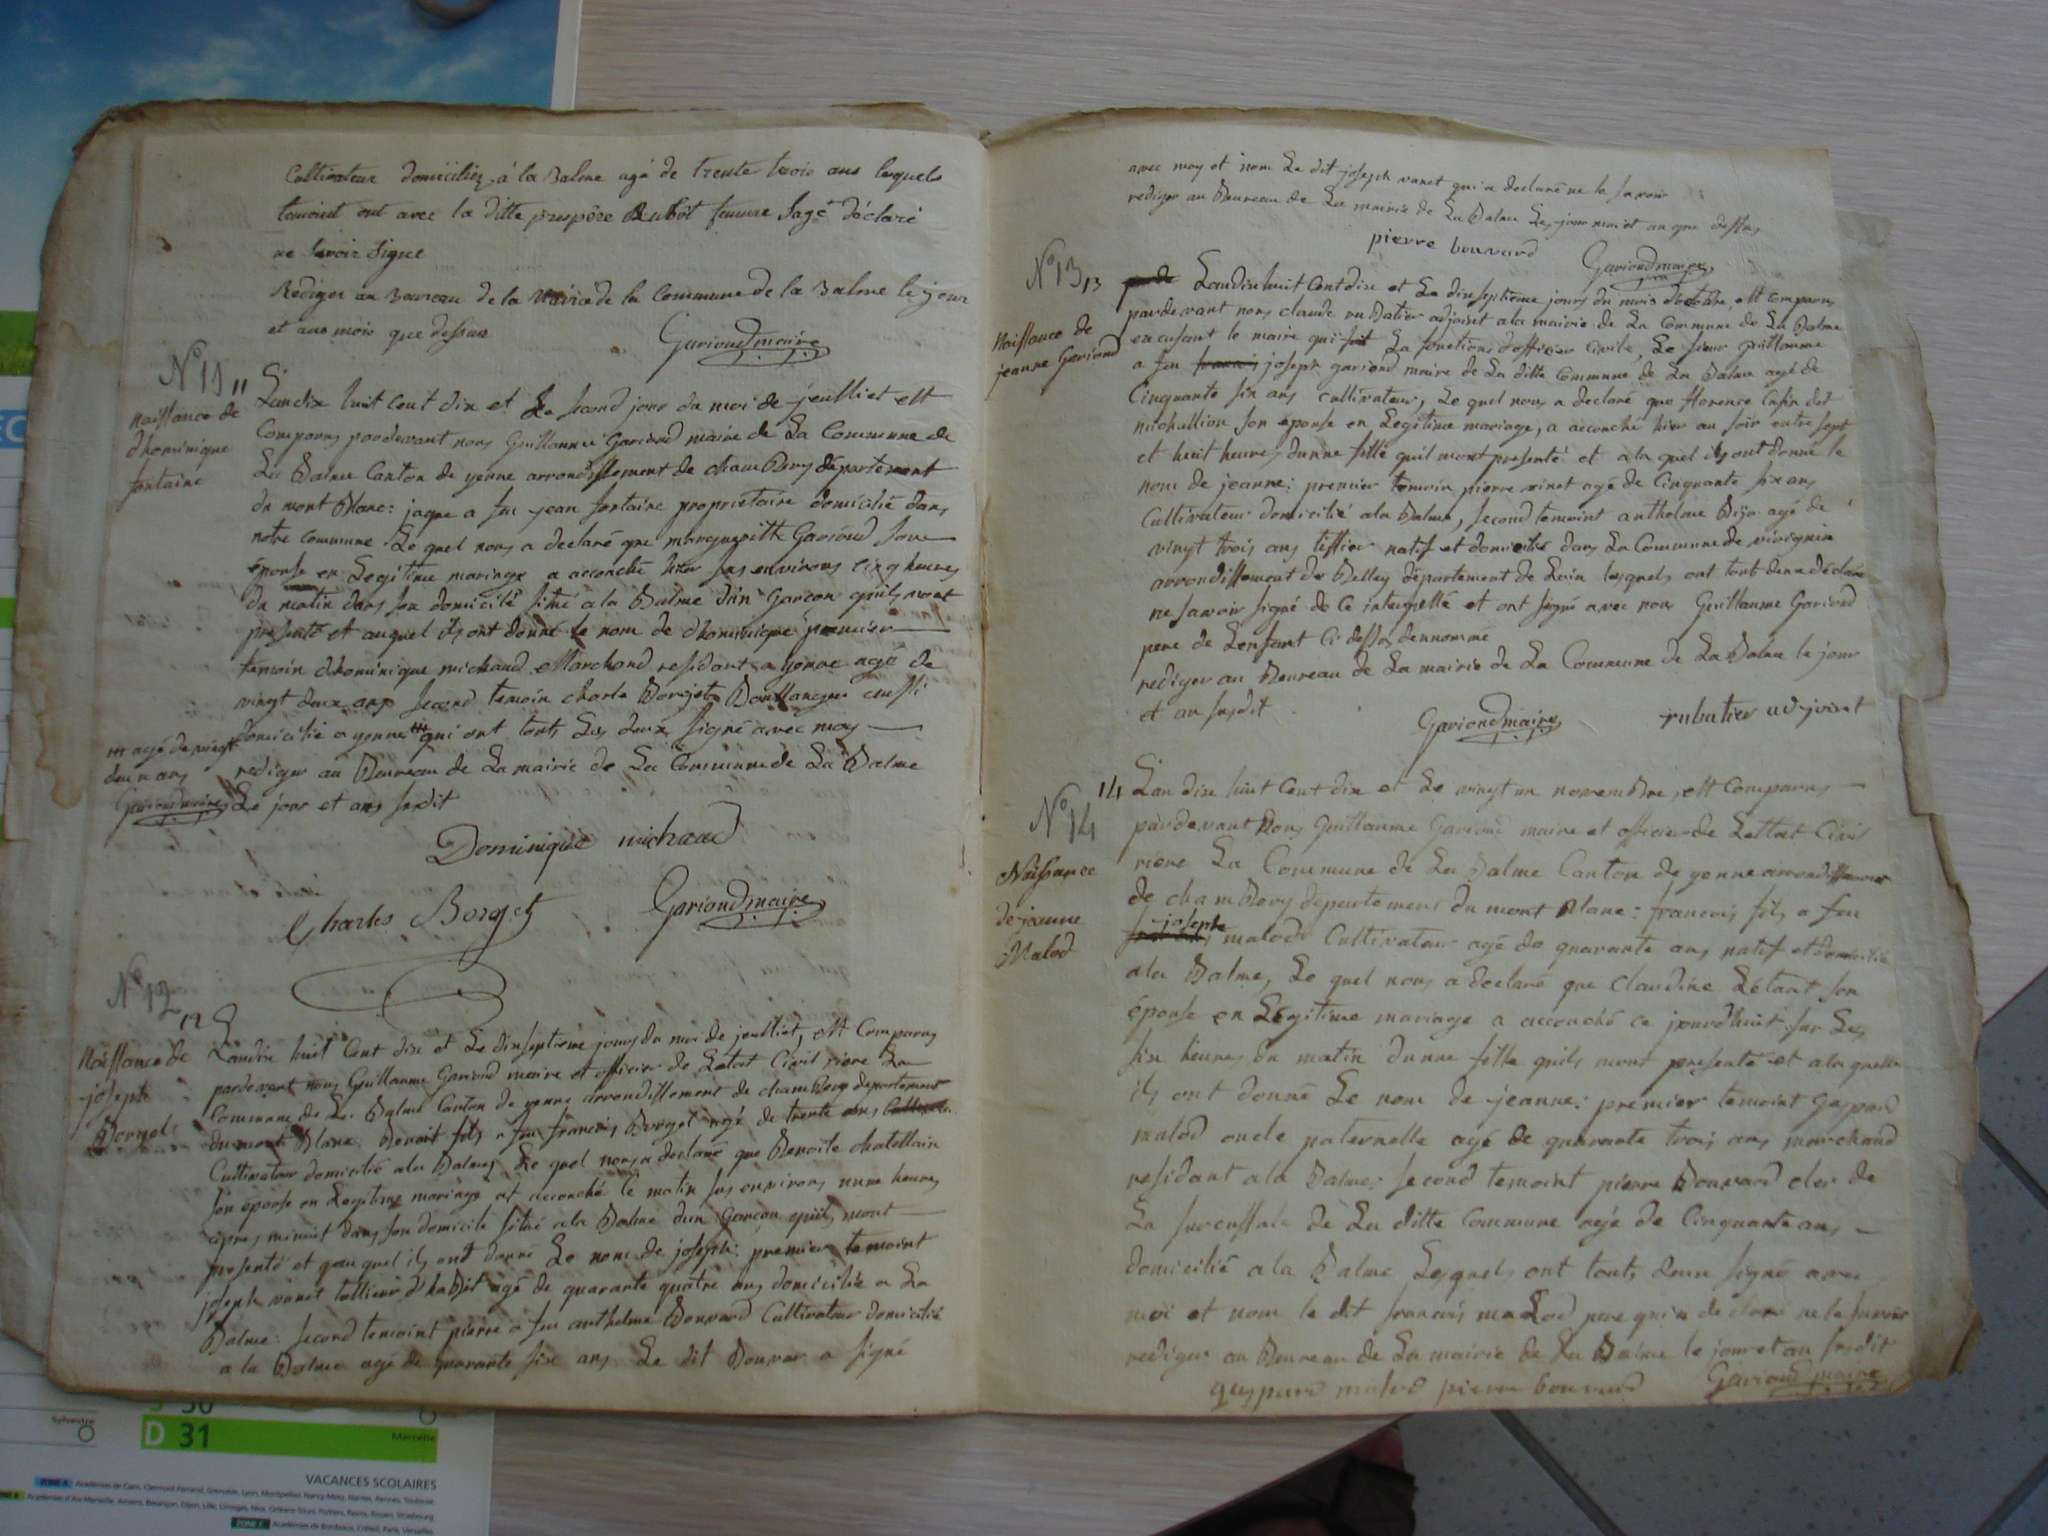 Cultivateur domicilié à la Balme agé de trente trois ans lesquels
temoint ont avec la ditte prospère Rubôt femme sage déclaré
ne savoir signe
Rediger au Bureau de la Mairie de la Commune de la Balme le jour
et ans mois que dessus
Gariond maire
N° 11
11
naissance de
dhominique
fontaine
Landix huit Cent dix et Le second jour du moi de jeulliet est
Comparus pardevant nous Guillaume Gariond maire de La Commune de
La Balme Canton de yenne arrondissement de chambery département
du mont Blanc: jaque a feu jean fontaine proprietaire domicilié dans
notre Commune Le quel nous a declaré que margueritte Gariond son
éponse en Legitime mariage a acconché hier sus environs cinq heures
du matin dans son domicile situé a la Balme d'un Garcon quils mont
presenté et auquel ils ont donné le nom de dhominique premier
temoin dhominique michaud Marchand residant a yenne agé de
vingt deux ans second temoin charle Borgets Boullanger aussi
domicilié a yenne qui ont touts Les deux signé avec moy
rediger au Bureau de La mairie de La Commune de La Balme
Le jour et ans susdit
agé de vingt
deux ans
Gariond maire
Dominique michaud
Charles Borget
Gariond maire
N° 12
12
Naissance de
joseph
Borget
Landix huit Cent dix et Le dixseptieme jours du moi de jeulliet, est Comparus
pardevant nous Guillaume Gariond maire et officier de Letat Civil riere La
Commune de La Balme Canton de yenne arrondissement de chambery departement
du mont Blanc Benoit fils a feu francois Borget agé de trente ans
Cultivateur domicilié ala Balme, Le quel nous a declaré que Benoite chatellain
son éponse en Legitime mariage at acconché le matin sus environs nune heures
apres minuit dans son domicile situé ala Balme dun Garcon quils mont
presenté et quauquel ils ont donné Le nom de joseph: premier temoint
joseph vanet tallieur d'habit agé de quarante quatre ans domicilié a La
Balme: second temoint pierre a feu anthelme Bouvard Cultivateur domicilié
a la Balme agé de quarante six ans Le dit Bouvar a signé
avec moy et non Le dit joseph vanet qui a declaré ne le savoir
rediger au Bureau de La mairie de La Balme Les jour mois et an que dessus
pierre bouvard
Gariond maire
N° 13
13
Naissance de
jeanne Gariond
Landixhuit Cent dix et Le dixseptieme jours du mois doctobre, est Comparus
pardevant nous claude rubatier adjoint ala mairie de La Commune de La Balme
en cusant le maire qui fait La fonctions d'officier civile, Le sieur guillaume
a feu joseph gariond maire de La ditte Commune de La Balme agé de
Cinquante six ans cultivateur, Le quel nous a declaré que florence
michallion son éponse en Legitime mariage, a acconché hier au soir entre sept
et huit heures dunne fille quil mont presenté et ala quel ils ont donné le
nom de jeanne: premier temoin pierre vinet agé de Cinquante six ans
Cultivateur domicilié ala Balme, second temoint anthelme Bijo agé de
vingt trois ans tissier natif et domicilié dans La Commune de
arrondissement de Belley département de Lain lesquels ont tout deux déclaré
ne savoir signé de ce interpellé et ont signé avec nous Guillaume Gariond
pere de Lenfant Ci dessus dennommé
rediger au Bureau de La mairie de La Commune de La Balme le jour
et an susdit
Gariond maire
rubatier adjoint
N° 14
14
Naissance
de jeanne
Malod
Lan dix huit Cent dix et Le vingt un novembre, est Comparus
pardevant Nous Guillaume Gariond maire et officier de Lettat Civil
riere La Commune de La Balme Canton de yenne arrondissement
de chambery departement du mont Blanc: francois fils a feu
joseph
malod Cultivateur agé de quarante ans natif et domicilié
ala Balme, Le quel nous a declaré que claudine Létant son
éponse en Légitime mariage a acconché ce jourd'huit sur Les
six heures du matin dunne fille quils mont presenté et ala quelle
ils ont donné Le nom de jeanne: premier temoint Gaspard
malod oncle paternelle agé de quarante trois ans marchand
residant ala Balme: second temoint pierre Bouvard cler de
La sucussale de La ditte Commune agé de Cinquante ans
domicilié a la Balme Lesquels ont touts deux signé avec
moi et non le dit francois malod pere qui a declaré ne le savoir
rediger au Bureau de La mairie de La Balme le jour et an susdit
gaspard malod pierre bouvard
Gariond maire
30
Sylvestre
D 31
Marcelle
VACANCES SCOLAIRES
ZONE C